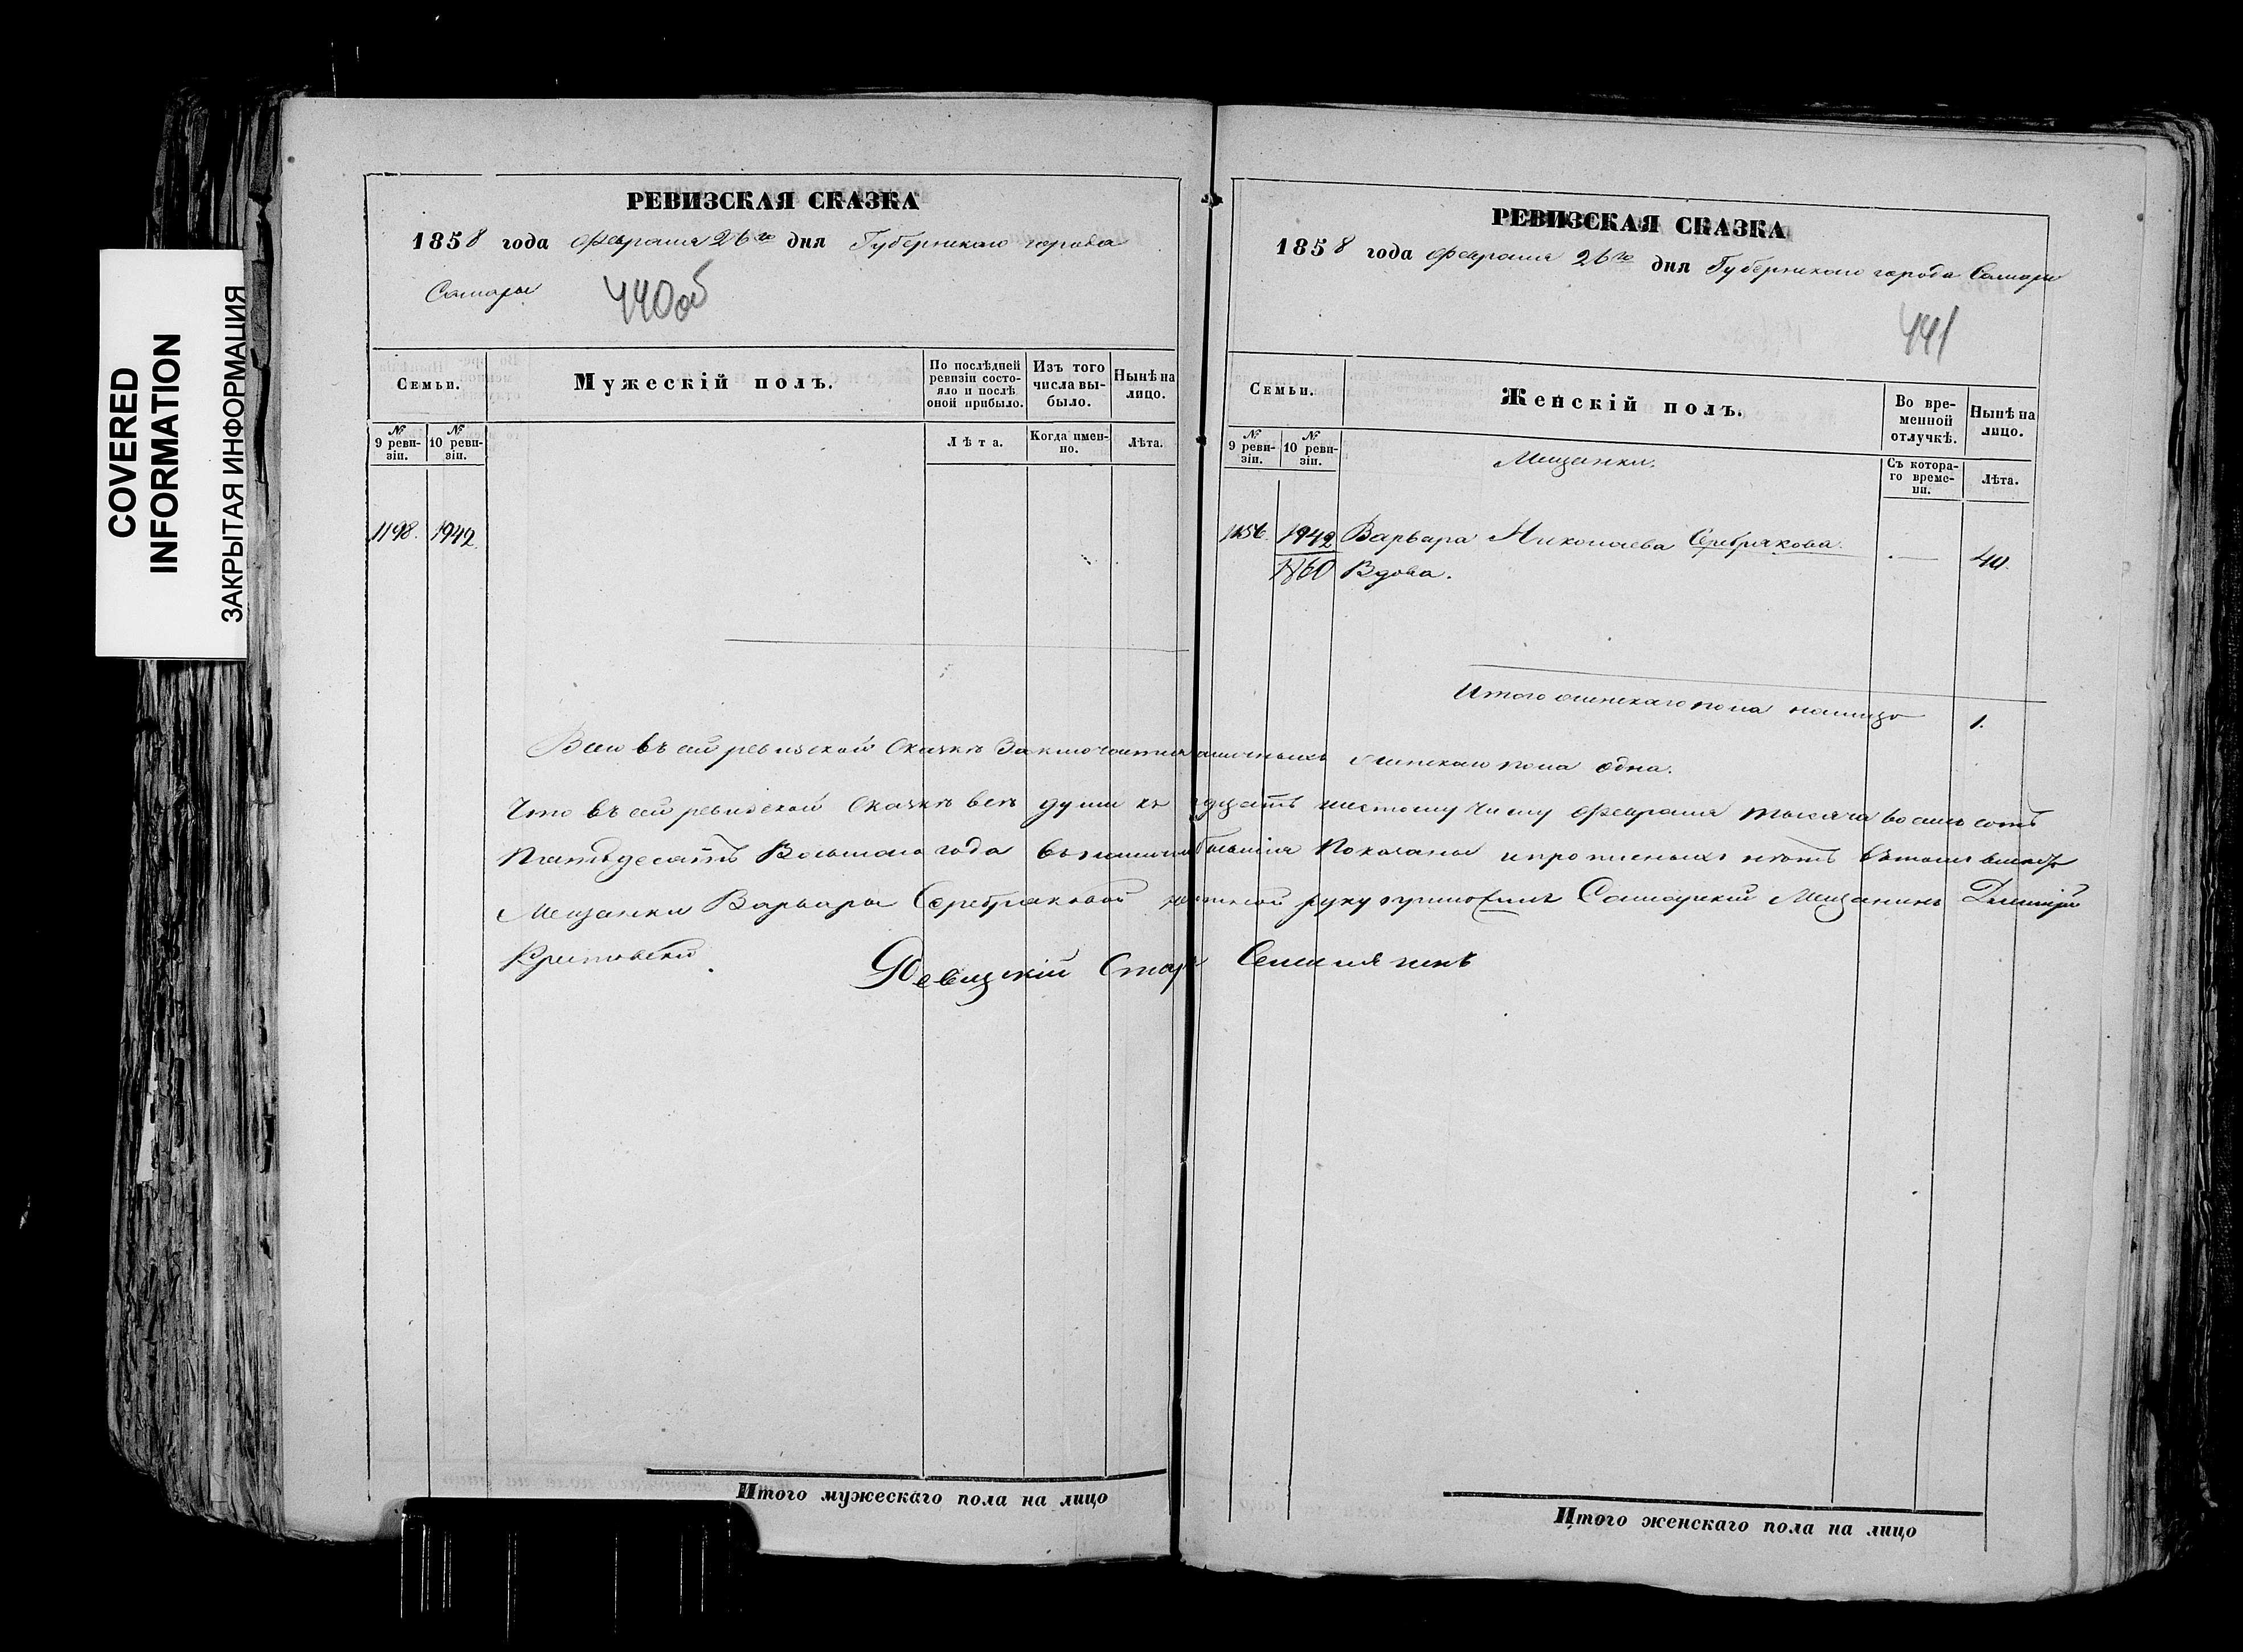 COVERED
INFORMATION
ЗАКРЫТАЯ ИНФОРМАЦИЯ
РЕВИЗСКАЯ СКАЗКА
1858 года февраля 26го дня Губернскаго города
Самары
440об
Семьи.
Мужескій полъ.
По послѣдней ревизіи состояло и послѣ оной прибыло.
Изъ того числа выбыло.
Нынѣ на лицо.
№ 9 ревизіи.
№ 10 ревизіи.
Лѣта.
Когда именно.
Лѣта.
1198. 1942.
РЕВИЗСКАЯ СКАЗКА
1858 года февраля 26го дня Губернскаго города Самары
441
Семьи.
Женскій полъ.
Во временной отлучкѣ.
Нынѣ на лицо.
№ 9 ревизіи.
№ 10 ревизіи.
Мещанки.
Съ котораго времени.
Лѣта.
1942 Варвара Николаева Серебрякова. — 40.
1860 Вдова.
Итого женскаго пола налицо 1.
Всего въ сей ревизской сказкѣ заключается женскаго пола одна.
Что въ сей ревизской сказкѣ всѣ души къ шестому числу февраля тысяча восемь сотъ
пятьдесятъ восьмаго года показаны и прописныхъ нѣтъ въ томъ вмѣсто
Мещанки Варвары Серебряковой руку приложилъ Самарскій Мещанинъ Димитрій
Ревизскій Стар
Итого мужескаго пола на лицо
Итого женскаго пола на лицо